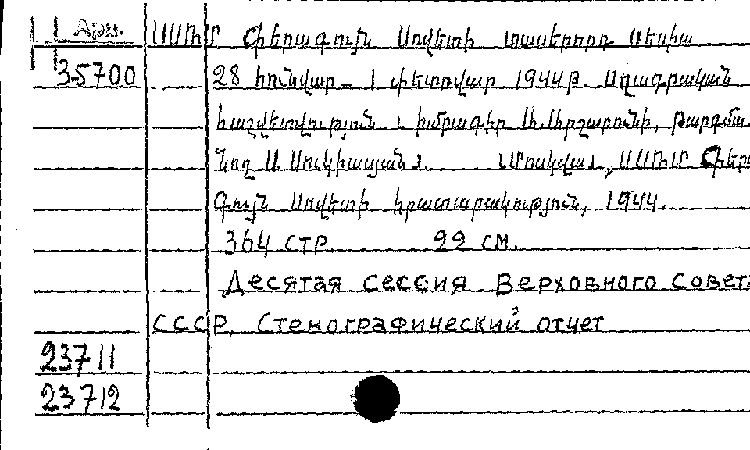 Арм. ՍՍՌՄ Գերագույն Սովետի տասերորդ սեսիա
35700 28 հունվար – 1 փետրվար 1944 թ. Սղագրական
հաշվետվություն. Խմբագիր Ա. Միրզաբունի, թարգմա
նող Ա. Սուկիասյան։ Մոսկվա, ՍՍՌՄ Գերա
գույն Սովետի հրատարակություն, 1944.
364 стр 22 см.
Десятая сессия Верховного Совет
СССР. Стенографический отчет
23711
23712